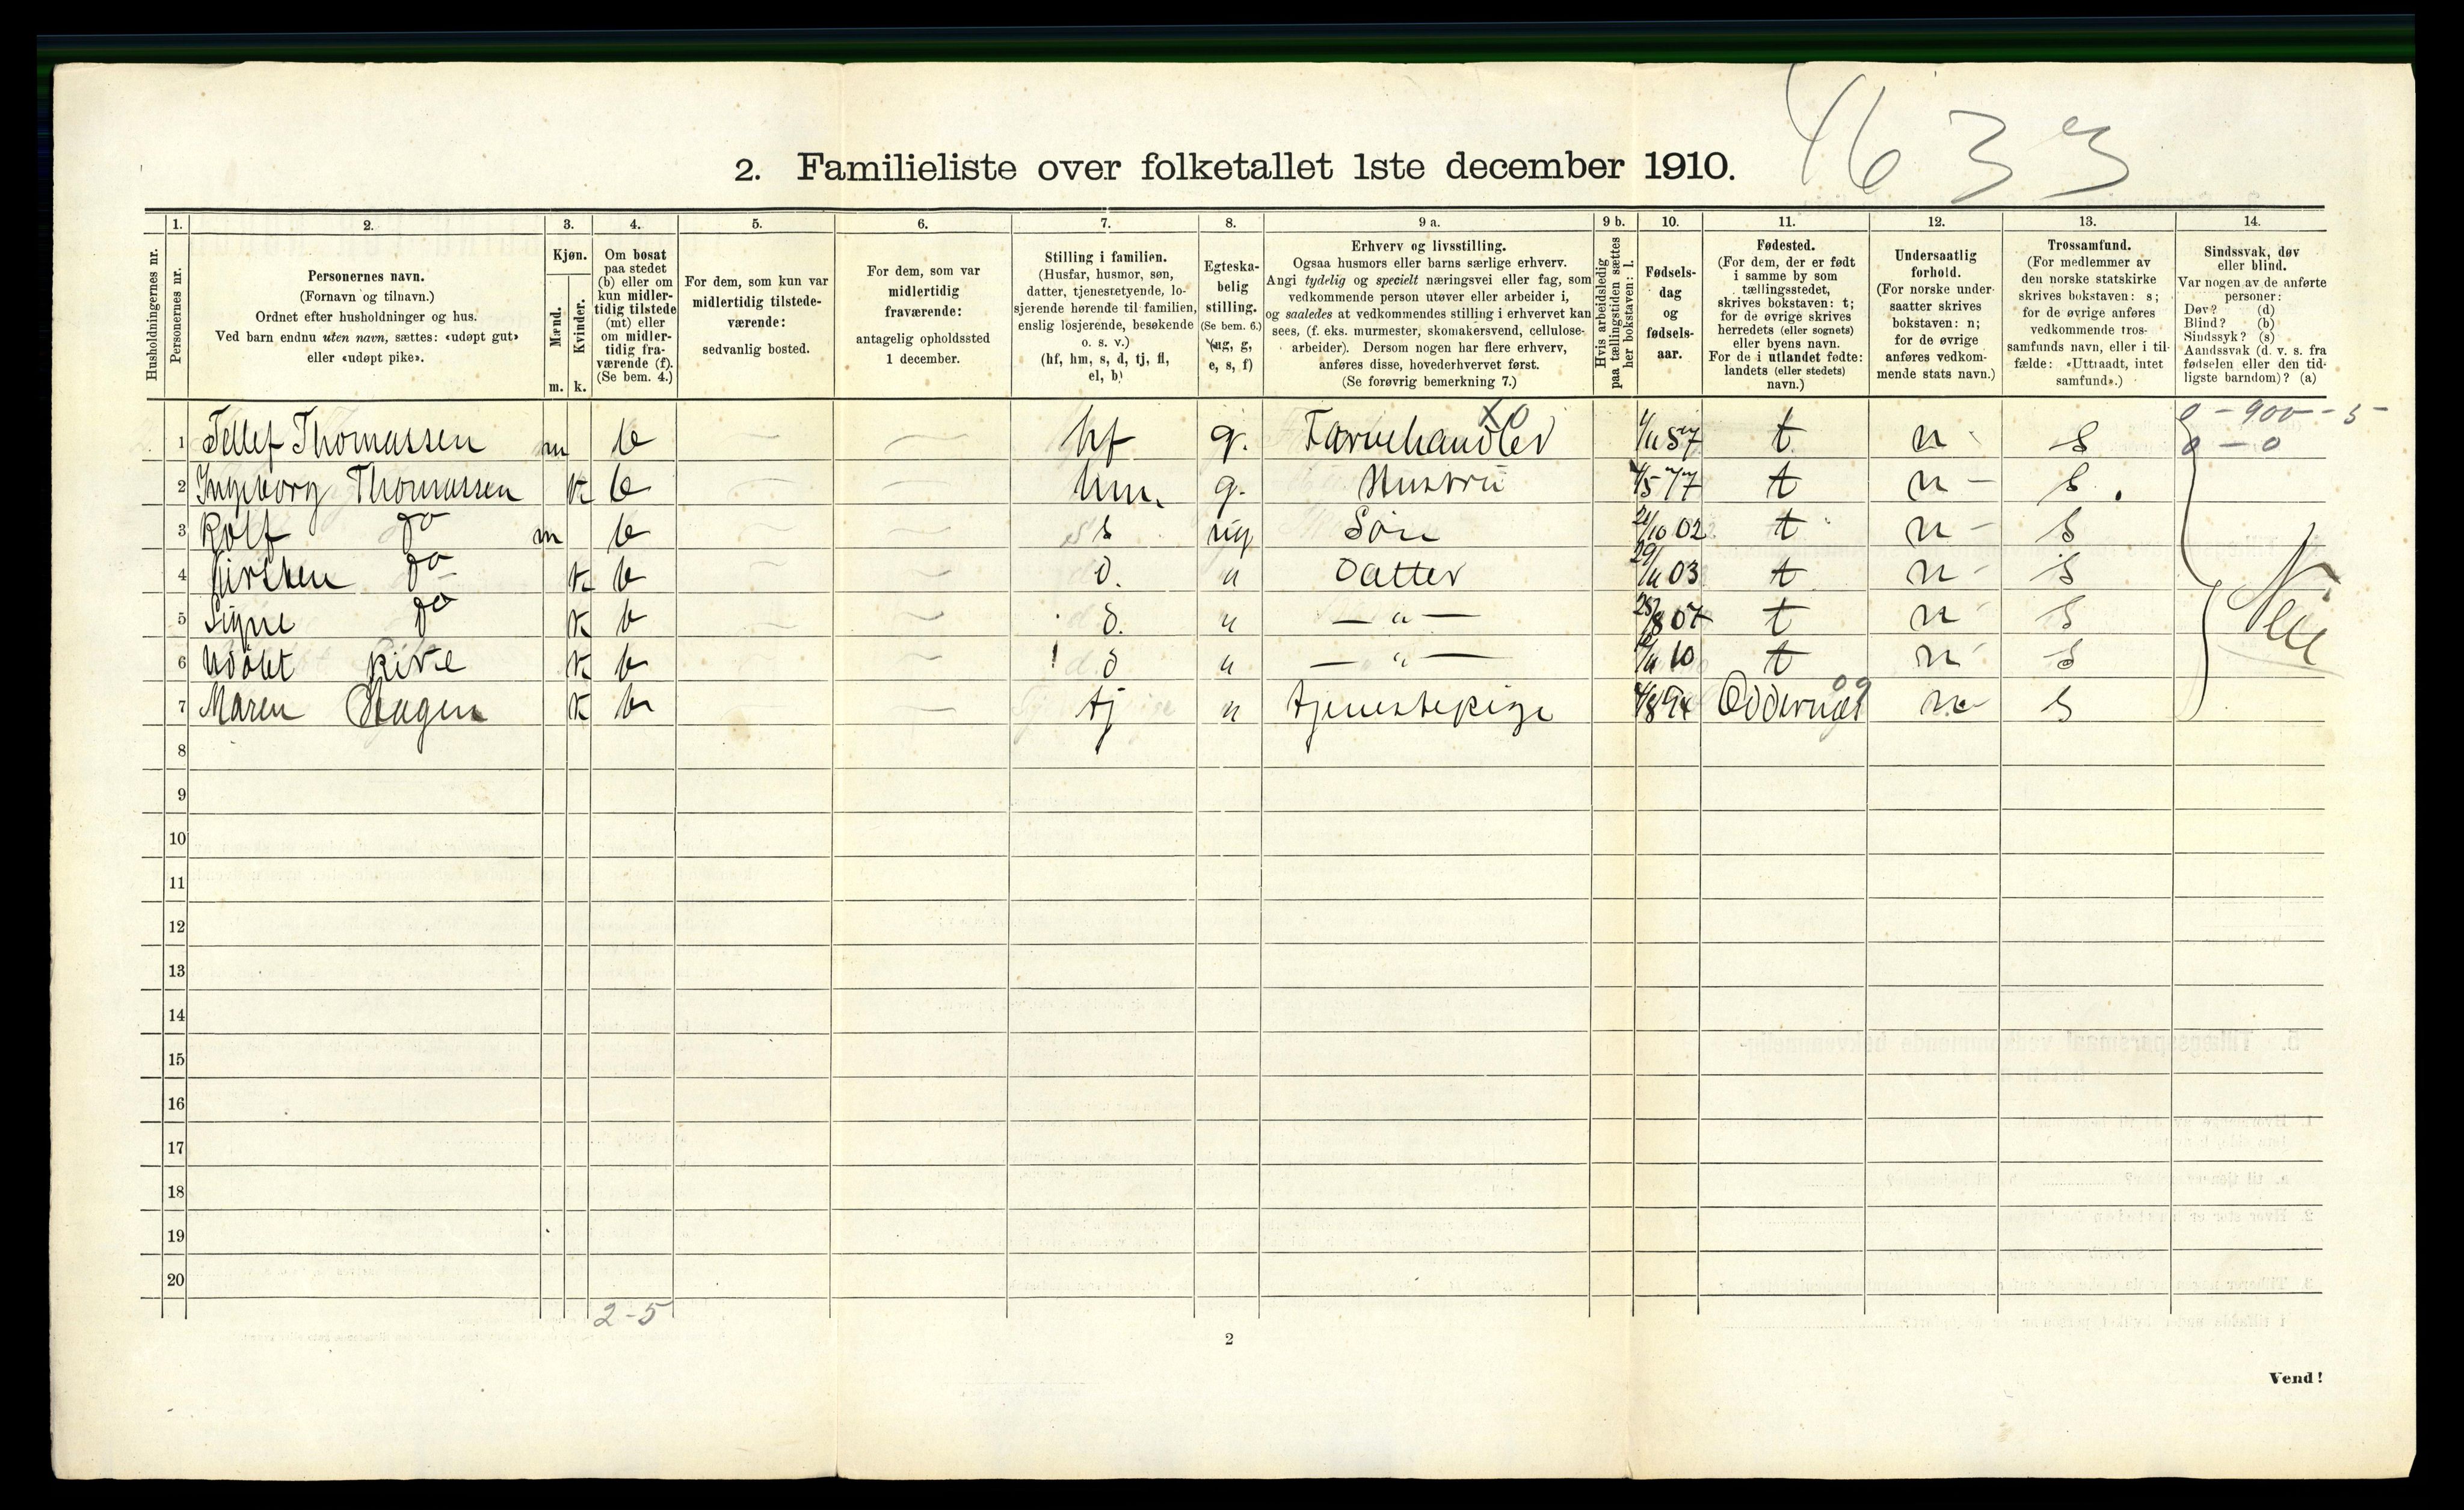 4633
2. Familieliste over folketallet 1ste december 1910.
Husholdningernes nr.
1. Personernes nr.
2. Personernes navn.
(Fornavn og tilnavn.)
Ordnet efter husholdninger og hus.
Ved barn endnu uten navn, sættes: «udøpt gut»
eller «udøpt pike».
3. Kjøn.
Mænd. m.
Kvinder. k.
4. Om bosat
paa stedet
(b) eller om
kun midler-
tidig tilstede
(mt) eller
om midler-
tidig fra-
værende (f).
(Se bem. 4.)
5. For dem, som kun var
midlertidig tilstede-
værende:
sedvanlig bosted.
6. For dem, som var
midlertidig
fraværende:
antagelig opholdssted
1 december.
7. Stilling i familien.
(Husfar, husmor, søn,
datter, tjenestetyende, lo-
sjerende hørende til familien,
enslig losjerende, besøkende
o. s. v.)
(hf, hm, s, d, tj, fl,
el, b)
8. Egteska-
belig
stilling.
(Se bem. 6.)
(ug, g,
e, s, f)
9 a. Erhverv og livsstilling.
Ogsaa husmors eller barns særlige erhverv.
Angi tydelig og specielt næringsvei eller fag, som
vedkommende person utøver eller arbeider i,
og saaledes at vedkommendes stilling i erhvervet kan
sees, (f. eks. murmester, skomakersvend, cellulose-
arbeider). Dersom nogen har flere erhverv,
anføres disse, hovederhvervet først.
(Se forøvrig bemerkning 7.)
9 b. Hvis arbeidsledig
paa tællingstiden sættes
her bokstaven: l.
10. Fødsels-
dag
og
fødsels-
aar.
11. Fødested.
(For dem, der er født
i samme by som
tællingsstedet,
skrives bokstaven: t;
for de øvrige skrives
herredets (eller sognets)
eller byens navn.
For de i utlandet fødte:
landets (eller stedets)
navn.)
12. Undersaatlig
forhold.
(For norske under-
saatter skrives
bokstaven: n;
for de øvrige
anføres vedkom-
mende stats navn.)
13. Trossamfund.
(For medlemmer av
den norske statskirke
skrives bokstaven: s;
for de øvrige anføres
vedkommende tros-
samfunds navn, eller i til-
fælde: «Uttraadt, intet
samfund».)
14. Sindssvak, døv
eller blind.
Var nogen av de anførte
personer:
Døv? (d)
Blind? (b)
Sindssyk? (s)
Aandssvak (d. v. s. fra
fødselen eller den tid-
ligste barndom)? (a)
0 - 900 - 5
1 Tellef Thomassen m b hf g. Farvehandler x0 57 t n s 0 - 0
2 Ingeborg Thomassen k b hm. g. Hustru 4/5 77 t n s
3 Rolf do m b s ug Søn 21/10 02 t n s
4 Kirsten do k b d. " Datter 29/11 03 t n s
5 Signe do k b d. " — " — 28/8 07 t n s
6 Udøbt pike k b d " — " — 10 t n s
7 Maren Hagen k b tj " tjenestepige 94 Oddernæs 09 n s
Nei
8
9
10
11
12
13
14
15
16
17
18
19
20
2-5
2
Vend!